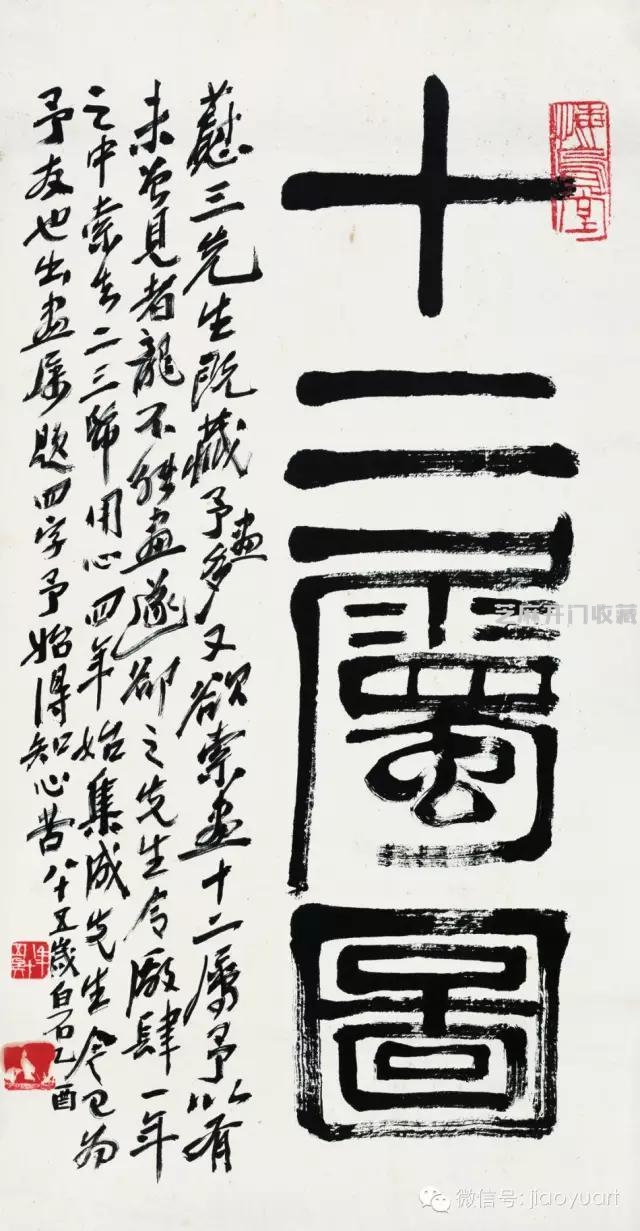 悔烏堂
十二屬圖
三先生既藏予畫多又欲索畫十二屬予以有
未曾見者龍不能畫遂卻之先生令厰肆一年
之中索去二三帋用心四年始集成先生今已為
予友也出畫屬題四字予始得知心苦八十五歲白石乙酉
芝麻开门收藏
微信号: jiaoyuart